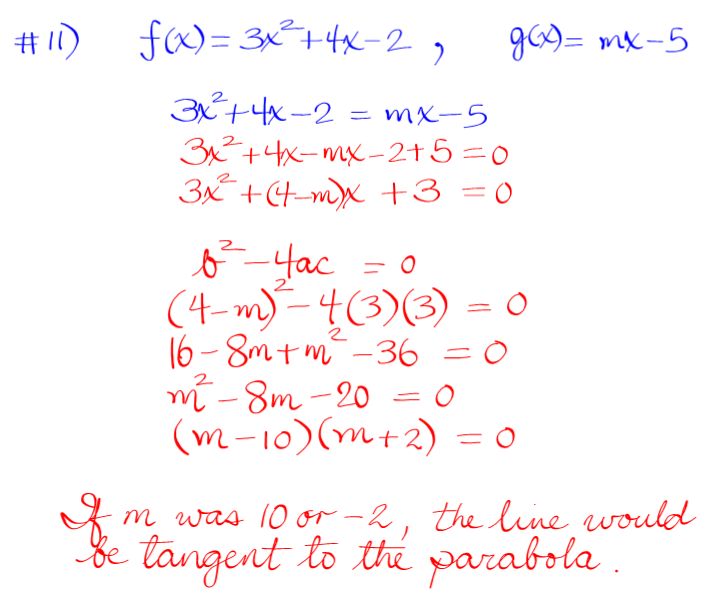 #11) f(x)= 3x²+4x-2 , g(x)= mx-5
3x²+4x-2 = mx-5
3x²+4x-mx-2+5=0
3x²+(4-m)x +3 =0
b²-4ac = 0
(4-m)²-4(3)(3) = 0
16-8m+m²-36 = 0
m²-8m-20 = 0
(m-10)(m+2) = 0
If m was 10 or -2, the line would
be tangent to the parabola.